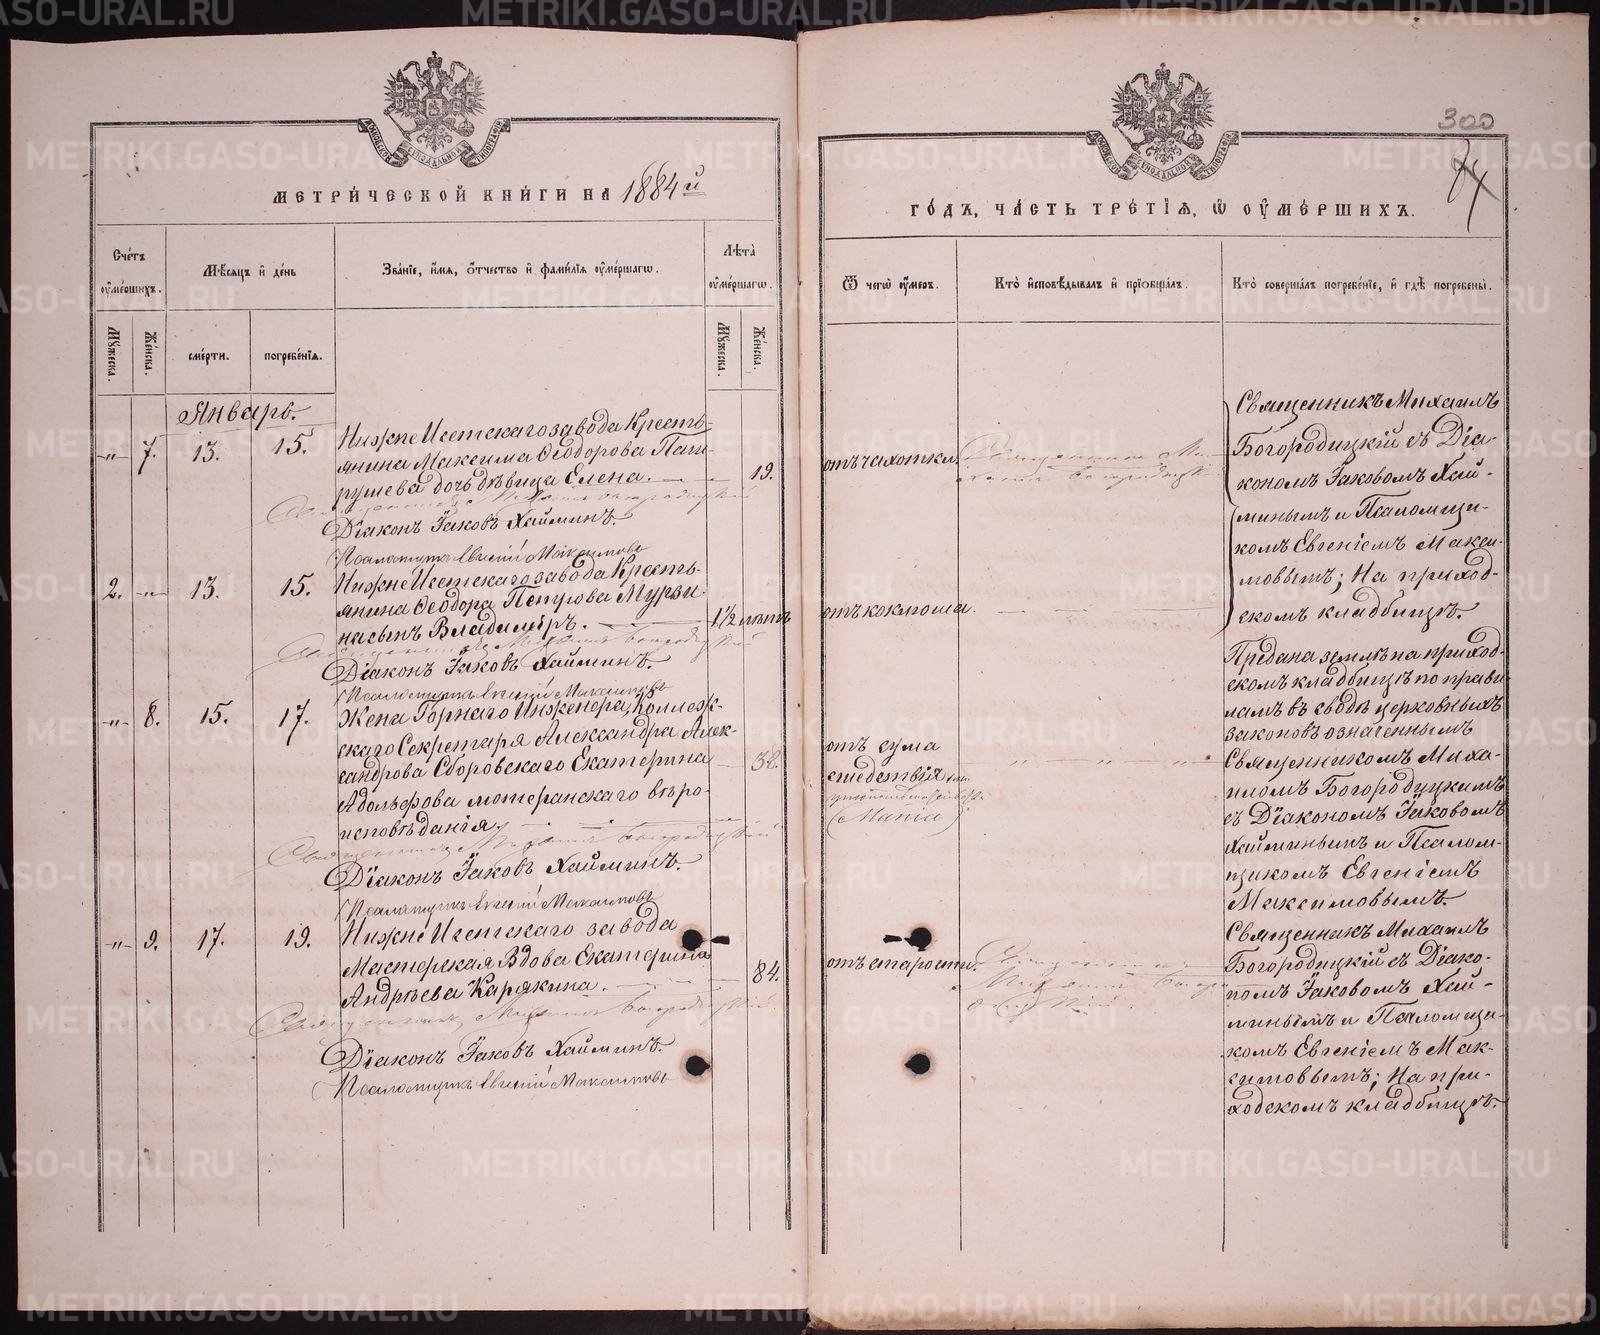 МЕТРИ́ЧЕСКОЙ КНИ́ГИ НА 1884й
Сче́тъ оу҆ме́ршихъ.
Мꙋ́жеска.
Же́нска.
Мѣ́сяцъ и҆ де́нь
сме́рти.
погребе́нїѧ.
Зва́нїе, и҆́мѧ, ѻ҆́тчество и҆ фамѵ́лїѧ оу҆ме́ршагѡ.
Лѣ̀та̀ оу҆ме́ршагѡ.
Мꙋ́жеска.
Же́нска.
Январь.
-"- 7. 13. 15.
Нижне Исетскаго завода Кресть-
янина Максима Ѳеодорова
дочь дѣвица Елена.
19.
Священникъ Михаилъ Богородицкій
Діаконъ Іаковъ Хайминъ.
Псаломщикъ Евгеній Максимовъ
2. -"- 13. 15.
Нижне Исетскаго завода Кресть-
янина Ѳеодора Петрова Мурзи-
на сынъ Владимѵръ.
1½ лѣтъ
Священникъ Михаилъ Богородицкій
Діаконъ Іаковъ Хайминъ.
Псаломщикъ Евгеній Максимовъ
-"- 8. 15. 17.
Жена Горнаго Инженера, Коллеж-
скаго Секретаря Александра Алек-
сандрова Сборовскаго Екатерина
Адольфова лютеранскаго вѣро-
исповѣданія.
32.
Священникъ Михаилъ Богородицкій
Діаконъ Іаковъ Хайминъ.
Псаломщикъ Евгеній Максимовъ
-"- 9. 17. 19.
Нижне Исетскаго завода
Мастерская Вдова Екатерина
Андрѣева Карякина.
84.
Священникъ Михаилъ Богородицкій
Діаконъ Іаковъ Хайминъ.
Псаломщикъ Евгеній Максимовъ
300
84
ГО́ДЪ, ЧА́СТЬ ТРЕ́ТЇѦ, Ѡ҆ ОУ҆МЕ́РШИХЪ.
Ѿ чегѡ̀ оу҆́меръ.
Кто̀ и҆сповѣ́дывалъ и҆ прїѻбща́лъ.
Кто̀ соверша́лъ погребе́нїе, и҆ гдѣ̀ погребены̀.
отъ чахотки.
Священникъ Ми-
хаилъ Богородицкій
Священникъ Михаилъ
Богородицкій съ Діа-
кономъ Іаковомъ Хай-
минымъ и Псаломщи-
комъ Евгеніемъ Макси-
мовымъ; На приход-
скомъ кладбищѣ.
отъ коклюша.
Предана землѣ на приход-
скомъ кладбищѣ по прави-
ламъ въ сводѣ церковныхъ
законовъ означеннымъ
Священникомъ Миха-
иломъ Богородицкимъ
съ Діакономъ Іаковомъ
Хайминымъ и Псалом-
щикомъ Евгеніемъ
Максимовымъ.
отъ сума
сшедствія
(Mania)
отъ старости.
Священникъ
Михаилъ Богоро-
дицкій
Священникъ Михаилъ
Богородицкій съ Діако-
номъ Іаковомъ Хай-
минымъ и Псаломщи-
комъ Евгеніемъ Мак-
симовымъ; На при-
ходскомъ кладбищѣ.
METRIKI.GASO-URAL.RU